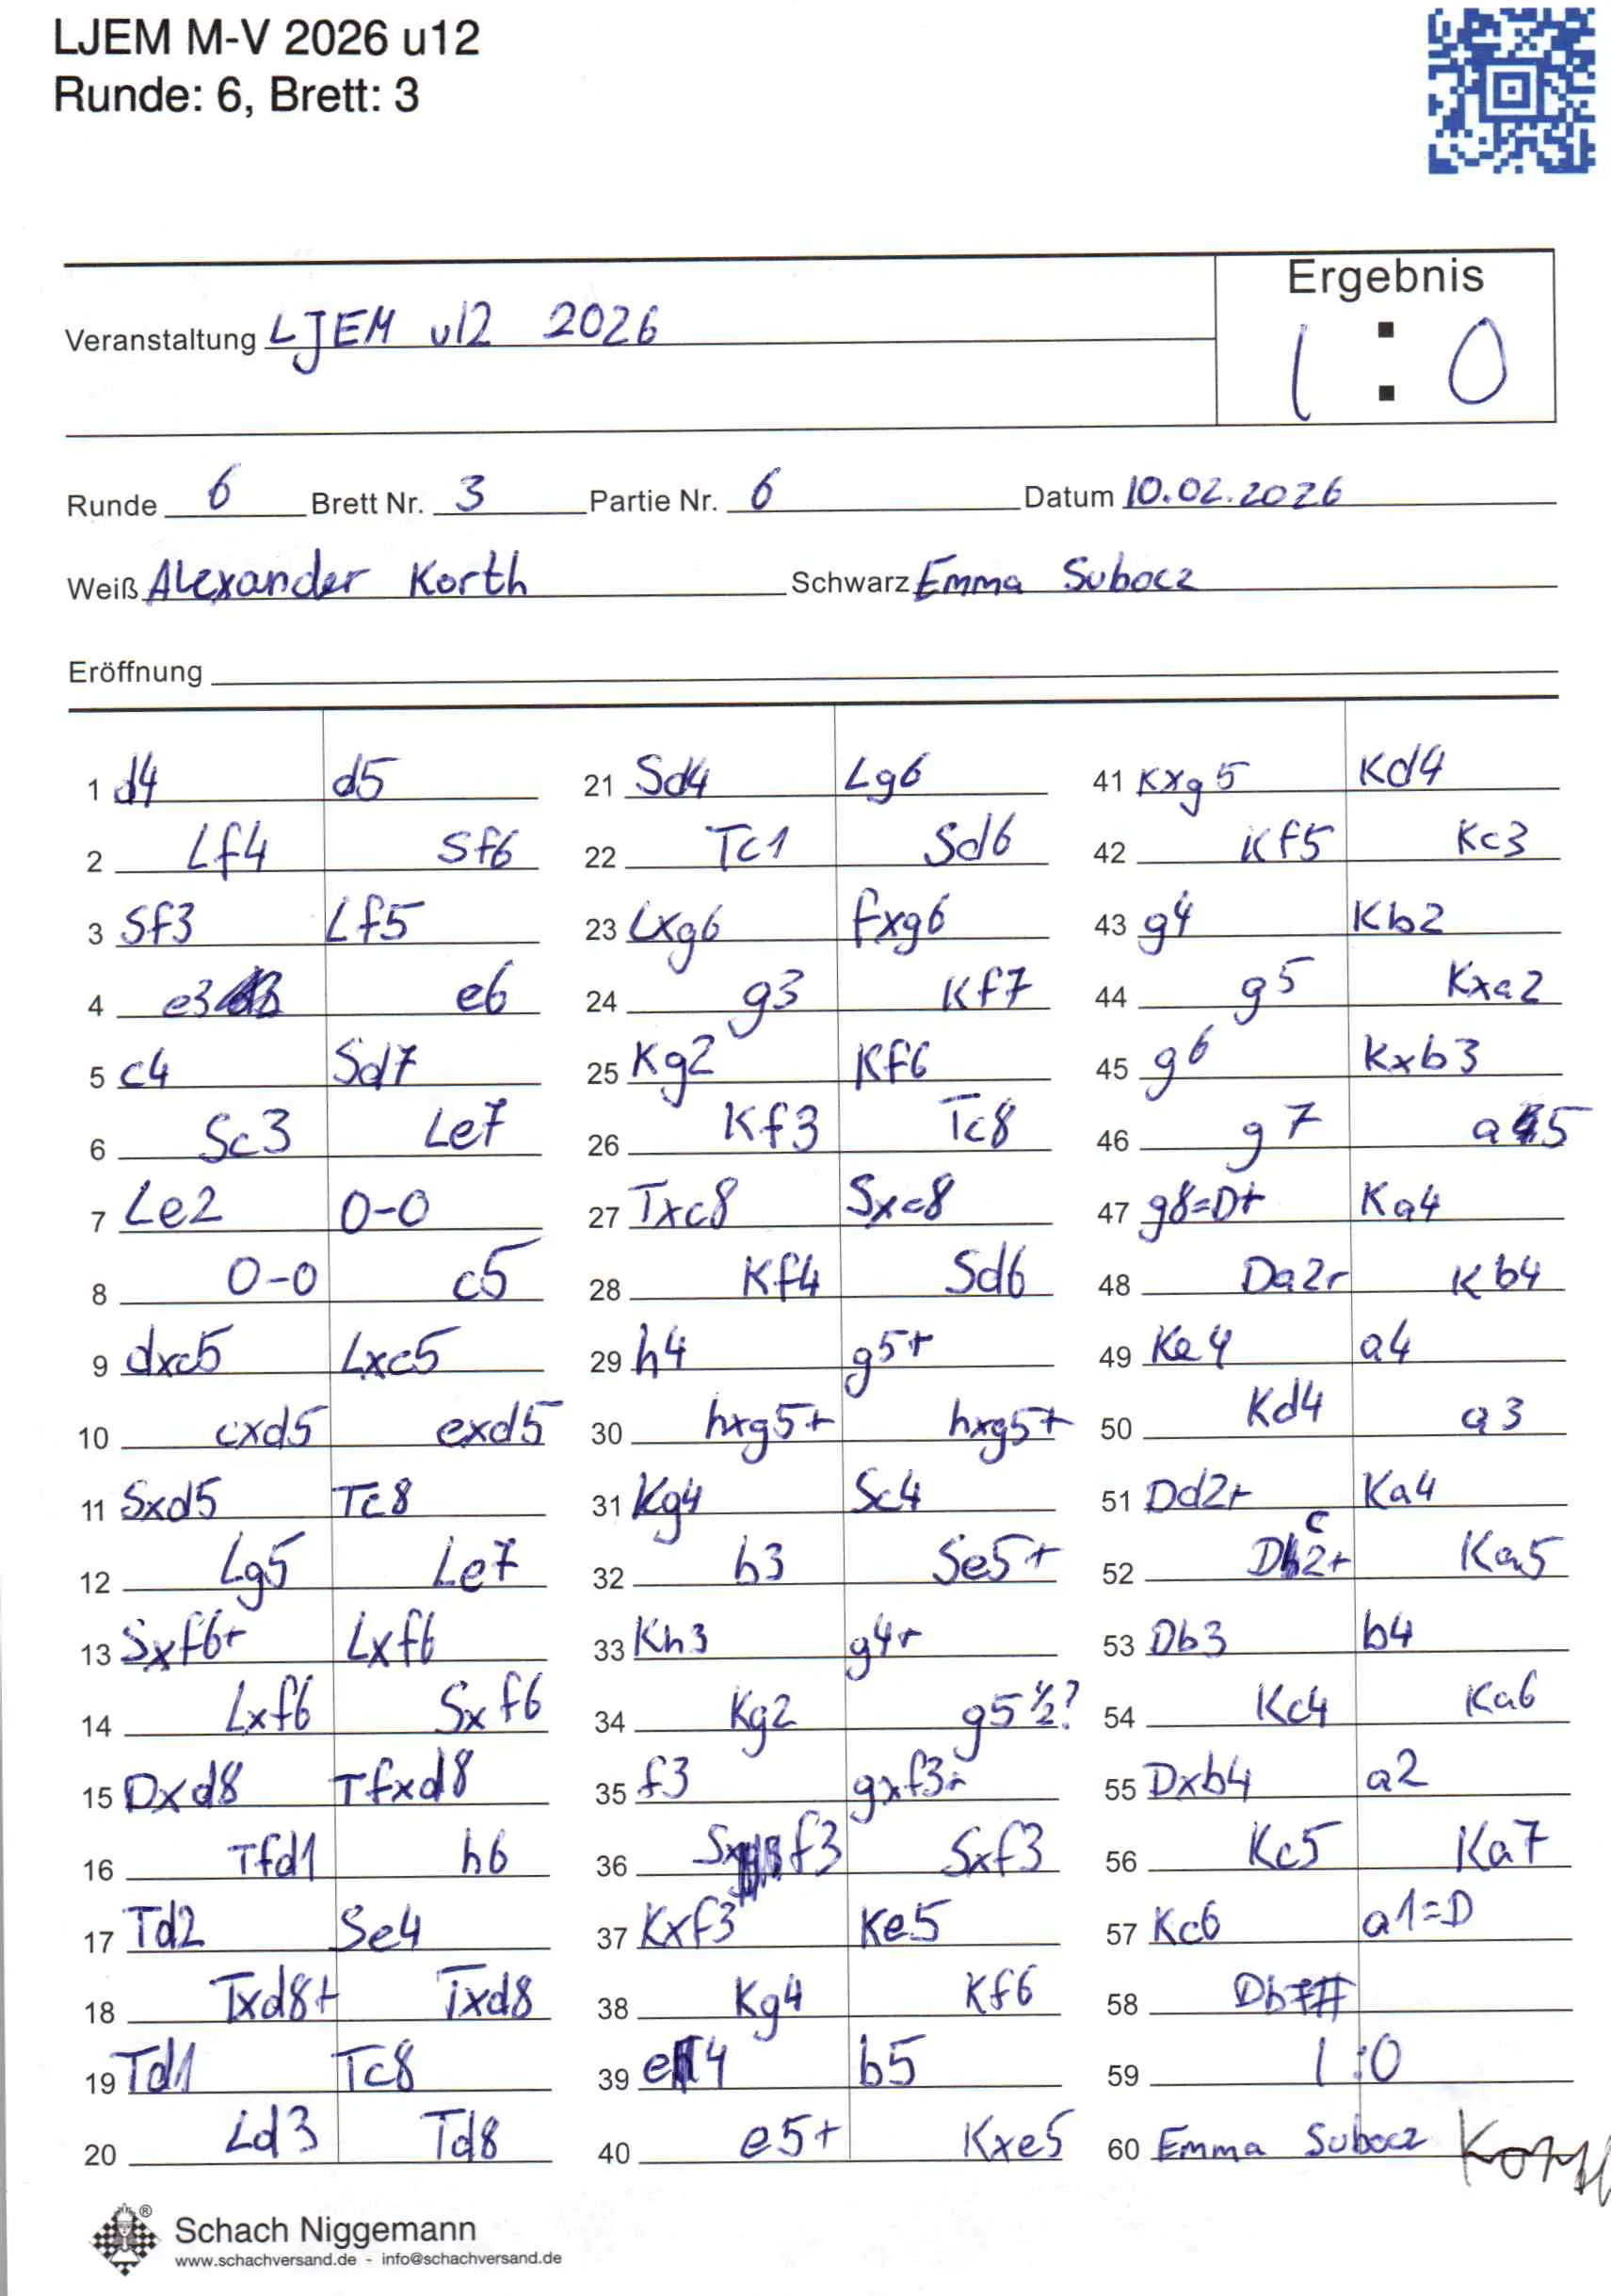 LJEM M-V 2026 u12
Runde: 6, Brett: 3
Ergebnis
Veranstaltung LJEM u12 2026
1 : 0
Runde 6 Brett Nr. 3 Partie Nr. 6 Datum 10.02.2026
Weiß Alexander Korth Schwarz Emma Subocz
Eröffnung
1 d4 d5
2 Lf4 Sf6
3 Sf3 Lf5
4 e3 e6
5 c4 Sd7
6 Sc3 Le7
7 Le2 0-0
8 0-0 c5
9 dxc5 Lxc5
10 cxd5 exd5
11 Sxd5 Tc8
12 Lg5 Le7
13 Sxf6+ Lxf6
14 Lxf6 Sxf6
15 Dxd8 Tfxd8
16 Tfd1 h6
17 Td2 Se4
18 Txd8+ Txd8
19 Td1 Tc8
20 Ld3 Td8
21 Sd4 Lg6
22 Tc1 Sd6
23 Lxg6 fxg6
24 g3 Kf7
25 Kg2 Kf6
26 Kf3 Tc8
27 Txc8 Sxc8
28 Kf4 Sd6
29 h4 g5+
30 hxg5+ hxg5+
31 Kg4 Sc4
32 b3 Se5+
33 Kh3 g4+
34 Kg2 g5 ½?
35 f3 gxf3+
36 Sxf3 Sxf3
37 Kxf3 Ke5
38 Kg4 Kf6
39 e4 b5
40 e5+ Kxe5
41 Kxg5 Kd4
42 Kf5 Kc3
43 g4 Kb2
44 g5 Kxa2
45 g6 Kxb3
46 g7 a5
47 g8=D+ Ka4
48 Da2+ Kb4
49 Ke4 a4
50 Kd4 a3
51 Dd2+ Ka4
52 Dc2+ Ka5
53 Db3 b4
54 Kc4 Ka6
55 Dxb4 a2
56 Kc5 Ka7
57 Kc6 a1=D
58 Db7#
59 1:0
60 Emma Subocz Korth
Schach Niggemann
www.schachversand.de - info@schachversand.de